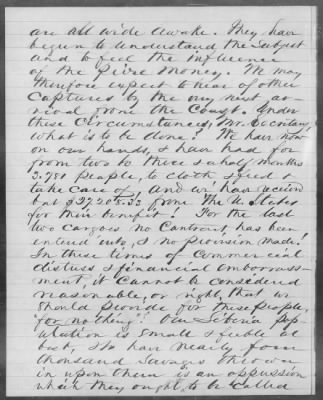 are all wide awake. They have
begun to understand the subject
and to feel the influence
of the Prize Money. We may
therefore expect to hear of other
Captures by the very next ar-
rival from the Coast. Under
these circumstances, Mr. Secretary,
what is to be done? We have now
on our hands, & have had for
from two to three & a half months
people, to clothe feed &
take care of, and we have received
but from the U. States
for their benefit! For the last
two cargoes no Contract, has been
entered into, & no provision made!
In these times of Commercial
distress & financial embarrass-
ment, it cannot be considered
reasonable, or right, that we
should provide for these people,
for nothing. Our Liberia pop-
ulation is small & feeble at
best, & to have nearly four
thousand Savages thrown
in upon them is an oppression
which they ought, to be